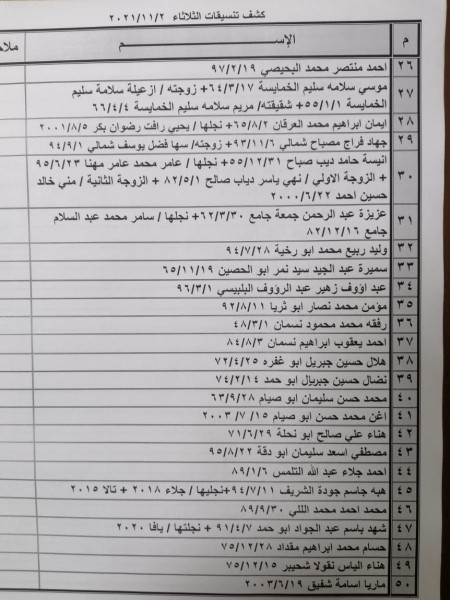 كشف تنسيقات الثلاثاء ٢٠٢١/١١/٢
م الإســـــــــــم ملاحـ
٢٦ احمد منتصر محمد البحيصي ٩٧/٢/١٩
٢٧ موسي سلامه سليم الخمايسة ٦٤/٣/١٧+ زوجته / ازعيلة سلامة سليم
الخمايسة ٥٥/١/١+ شقيقته/ مريم سلامه سليم الخمايسة ٦٦/٤/٤
٢٨ ايمان ابراهيم محمد العرقان ٦٥/٨/٢+ نجلها / يحيي رافت رضوان بكر ٢٠٠١/٨/٥
٢٩ جهاد فراج مصباح شمالي ٩٣/١١/٦+ زوجته/ سها فضل يوسف شمالي ٩٤/٩/١
٣٠ انيسة حامد ديب صباح ٥٥/١٢/٣١+ نجلها / عامر محمد عامر مهنا ٩٥/٦/٢٣
+ الزوجة الاولي / نهي ياسر دياب صالح ٨٢/٥/١ + الزوجة الثانية / مني خالد
حسين احمد ٢٠٠٠/٦/٢٢
٣١ عزيزة عبد الرحمن جمعة جامع ٦٢/٣/٣٠+ نجلها / سامر محمد عبد السلام
جامع ٨٢/١٢/١٦
٣٢ وليد ربيع محمد ابو رخية ٩٤/٧/٢٨
٣٣ سميرة عبد الجيد سيد نمر ابو الحصين ٦٥/١١/١٩
٣٤ عبد اؤوف زهير عبد الرؤوف البلبيسي ٩٦/٣/١
٣٥ مؤمن محمد نصار ابو ثريا ٩٢/٨/١١
٣٦ رفقه محمد محمود نسمان ٤٨/٣/١
٣٧ احمد يعقوب ابراهيم نسمان ٨٤/٨/٣
٣٨ هلال حسين جبريل ابو غفره ٧٢/٤/٢٥
٣٩ نضال حسين جبريال ابو حمد ٧٤/٢/١٤
٤٠ محمد حسن سليمان ابو صيام ٦٣/٩/٢٨
٤١ اغن محمد حسن ابو صيام ١٥ /٧ /٢٠٠٣
٤٢ هناء علي صالح ابو نحلة ٧١/٦/٢٩
٤٣ مصطفي اسعد سليمان ابو دقة ٩٥/٨/٢٢
٤٤ احمد جلاء عبد الله التلمس ٨٩/١/٦
٤٥ هبه جاسم جودة الشريف ٩٤/٧/١١+نجليها / جلاء ٢٠١٨ + تالا ٢٠١٥
٤٦ محمد احمد محمد اللي ٨٩/٩/٣٠
٤٧ شهد باسم عبد الجواد ابو حمد ٩١/٤/٧ + نجلتها / يافا ٢٠٢٠
٤٨ حسام محمد ابراهيم مقداد ٧٥/١٢/٢٨
٤٩ هناء الياس نقولا شحيبر ٧٥/١٢/١٥
٥٠ ماريا اسامة شفيق ٢٠٠٣/٦/١٩